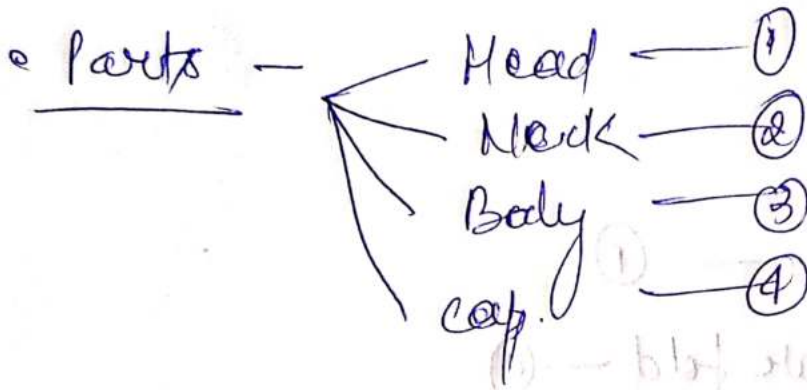 • Parts — Head — ①
Neck — ②
Body — ③
cap. — ④